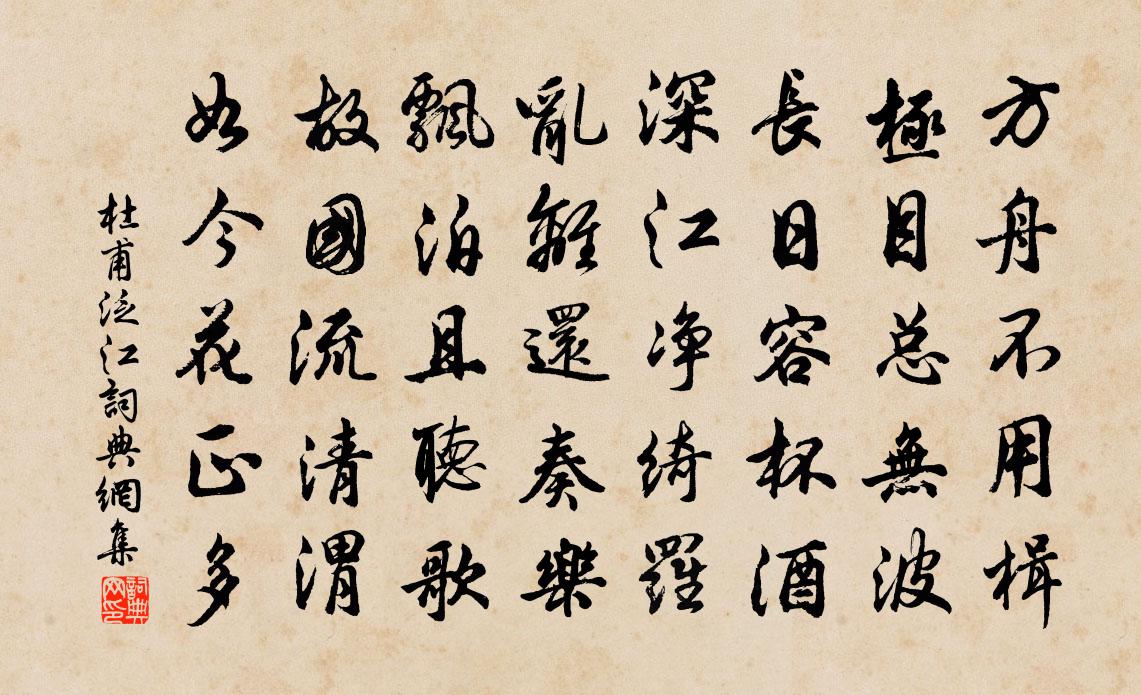 方舟不用楫
極目总無波
長日容杯酒
深江净綺羅
亂離還奏樂
飄泊且聽歌
故國流清渭
如今花正多
杜甫泛江詞典網集
詞典网印